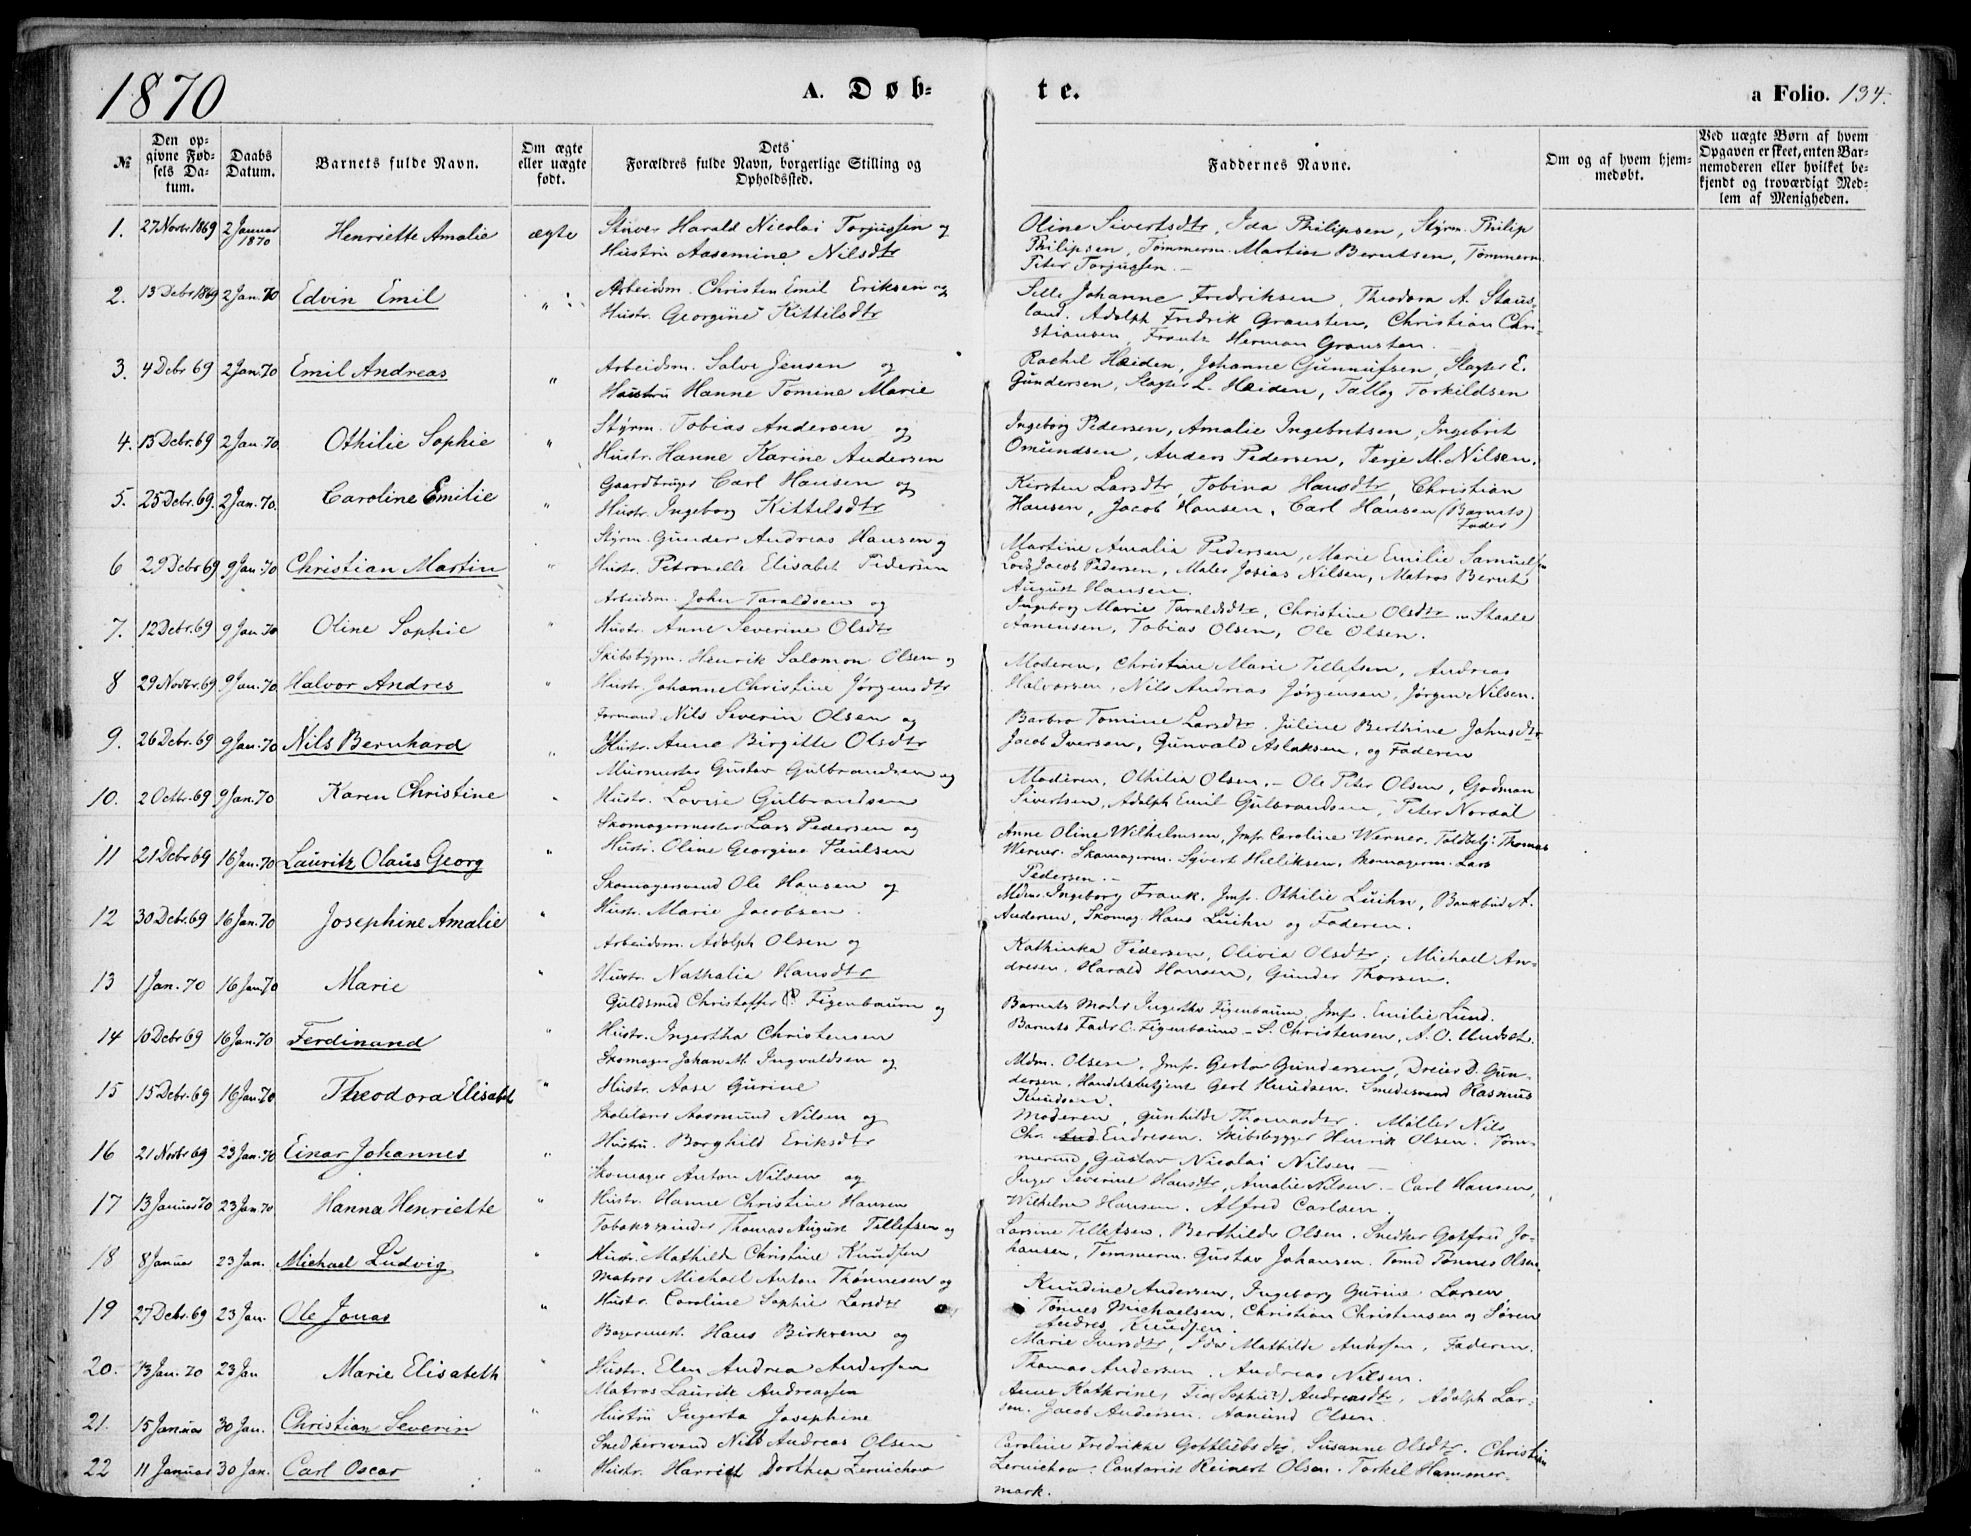 1870
A. Døb-
te.
a Folio. 134.
№
Den op-
givne Fød-
sels Da-
tum.
Daabs
Datum.
Barnets fulde Navn.
Om ægte
eller uægte
født.
Dets
Forældres fulde Navn, borgerlige Stilling og
Opholdssted.
Faddernes Navne.
Om og af hvem hjem-
medøbt.
Ved uægte Børn af hvem
Opgaven er skeet, enten Bar-
nemoderen eller hvilket be-
kjendt og troværdigt Med-
lem af Menigheden.
1. 27 Novbr 1869 2 Januar 1870 Henriette Amalie ægte
Stuver Harald Nicolai Torjussen og
Hustru Aasemine Nilsdtr
Oline Sivertsdtr, Ida Philipsen, Styrm. Philip
Philipsen, Tømmerm. Martin Berntsen, Tømmerm.
Peter Torjussen.
2. 13 Debr 1869 2 Jan. 70 Edvin Emil "
Arbeidsm. Christen Emil Eriksen og
Hustr. Georgine Kittilsdtr
Sille Johanne Fredriksen, Theodora A. Staus-
land. Adolph Fredrik Gransten, Christian Chri-
stiansen, Frantz Herman Gransten.
3. 4 Debr 69 2 Jan. 70 Emil Andreas "
Arbeidsm. Salve Jensen og
Hustru Hanne Tomine Marie
Rachel Heiden, Johanne Gunnufsen, Slagter E.
Gundersen, Slagter L. Heiden, Tallag Torkildsen
4. 13 Debr. 69 2 Jan. 70. Othilie Sophie "
Styrm. Tobias Andersen og
Hustr. Hanne Karine Andersen
Ingeborg Pedersen, Amalie Ingebretsen, Ingebrit
Omundsen, Anders Pedersen, Terje M. Nilsen.
5. 25 Debr. 69. 2 Jan. 70. Caroline Emilie "
Gaardbruger Carl Hansen og
Hustr. Ingeborg Kittilsdtr
Kirsten Larsdtr, Tobina Hansdtr, Christian
Hansen, Jacob Hansen, Carl Hansen (Barnets
Fader)
6 29 Debr 69 9 Jan. 70 Christian Martin "
Styrm. Gunder Andreas Hansen og
Hustr. Petronelle Elisabet Pedersen
Martine Amalia Pedersen, Marie Emilie Samuelsen
Lods Jacob Pedersen, Maler Josias Nilsen, Matros Bernt
August Hansen.
7. 12 Debr. 69 9 Jan 70 Oline Sophie "
Arbeidsm. John Taraldsen og
Hustr. Anne Severine Olsdtr
Ingeborg Marie Taraldsdtr, Christine Olsdtr, Staale
Aanensen, Tobias Olsen, Ole Olsen.
8 29 Novbr. 69 9 Jan. 70 Halvor Andres "
Skibsbygm. Henrik Salomon Olsen og
Hustr. Johanne Christine Jørgensdtr
Moderen, Christine Marie Tellefsen, Andreas
Halvorsen, Nils Andreas Jørgensen, Jørgen Nilsen.
9. 26 Debr. 69 9 Jan. 70 Nils Bernhard "
Formand Nils Severin Olsen og
Hustr. Anne Birgitte Olsdtr
Barbro Tomine Larsdtr. Juline Berthine Johnsdtr
Jacob Iversen, Gunvald Aslaksen, og Faderen
10. 2 Octbr. 69 9 Jan. 70 Karen Christine "
Muurmester Gustav Gulbrandsen og
Hustr. Lovise Gulbrandsen
Moderen, Othilia Olsen. Ole Peter Olsen, Godman
Sivertsen, Adolph Emil Gulbrandsen, Peter Nordal
11 21 Debr 69 16 Jan. 70 Lauritz Olaus Georg "
Skomagermester Lars Pedersen og
Hustr. Oline Georgine Paulsen
Anne Oline Wilhelmsen, Jmfr. Caroline Werner. Toldbetj. Thomas
Werner. Skomagerm. Syvert Hilliksen, Skomagerm. Lars
Pedersen.
12 30 Debr. 69 16 Jan. 70 Josephine Amalie "
Skomagersvend Ole Hansen og
Hustr. Marie Jacobsen.
Mdm. Ingeborg Frank. Jmf. Othilie Luihn, Bankbud A.
Andersen, Skomag. Hans Luihn og Faderen.
13 1 Jan. 70 16 Jan. 70 Marie "
Arbeidsm. Adolph Olsen og
Hustr. Nathalia Hansdtr
Kathinka Pedersen, Olivia Olsdtr, Michael An-
dresen. Harald Hansen, Gunder Thorsen.
14 10 Debr 69 16 Jan. 70 Ferdinand "
Guldsmed Christoffer Figenbaum og
Hustr. Ingertha Christensen
Barnets Moder Ingertha Figenbaum, Jmf. Emilie Lund.
Barnets Fader C. Figenbaum - S. Christensen, A. O. Undset.
15 15 Debr. 69 16 Jan. 70 Theodora Elisabet "
Skomager Johan M. Ingvaldsen og
Hustr. Aase Gurine
Mdm. Olsen, Jmf. Gerta Gundersen, Dreier D. Gun-
dersen, Handelsbetjent Gert Knudsen. Smedesvend Rasmus
Knudsen.
16 21 Novbr 69 23 Jan. 70 Einar Johannes "
Skolelærer Aasmund Nilsen og
Hustru. Borghild Eriksdtr
Moderen, Gunhilde Thomasdtr. Møller Nils
Chr. And. Endresen. Skibsbygger Henrik Olsen. Tøm-
mermd Gustav Nicolai Nilsen
17 13 Januar 70 23 Jan. 70 Hanna Henriette "
Skomager Anton Nilsen og
Hustr. Hanne Christine Hansen
Inger Severine Hansdtr, Amalie Nilsen. Carl Hansen,
Wilhelm Hansen. Alfred Carlsen.
18 8 Januar 23 Jan. Michael Ludvig "
Tobaksspinder Thomas August Tellefsen og
Hustr. Mathilde Christine Knudsen
Larsine Tellefsen. Berthilde Olsen. Snedker Gotfred Jo-
hansen, Tømmerm. Gustav Johansen. Tomd Tønnes Olsen.
19 27 Debr. 69 23 Jan. Ole Jonas "
Matros Michael Anton Thønnesen og
Hustr. Caroline Sophie Larsdtr
Knudine Andersen, Ingeborg Gurine Larsen
Tønnes Michaelsen, Christian Christensen og Søren
Andres Knudsen.
20. 13 Jan. 70 23 Jan Marie Elisabeth "
Bagermest. Hans Birkrem og
Hustr. Elen Andrea Andersen
Marie Iversdtr, Ida Mathilde Andersen, Faderen.
Thomas Andersen. Andreas Nilsen.
21. 15 Januar 30 Jan. Christian Severin "
Matros Lauritz Andreassen
Hustru Ingerta Josephine
Anne Kathrine, Fia (Sophie?) Andreasdtr, Adolph Lar-
sen. Jacob Andersen. Aanund Olsen.
22 11 Januar 30 Jan. Carl Oscar "
Snedkersvend Nils Andreas Olsen
Hustr. Harriet Dorthea Zernichow
Caroline Fredrikke Gottliebsdtr, Susanne Olsdtr. Christian
Zernichow. Cantorist Reinert Olsen. Torkel Hammer-
mark.